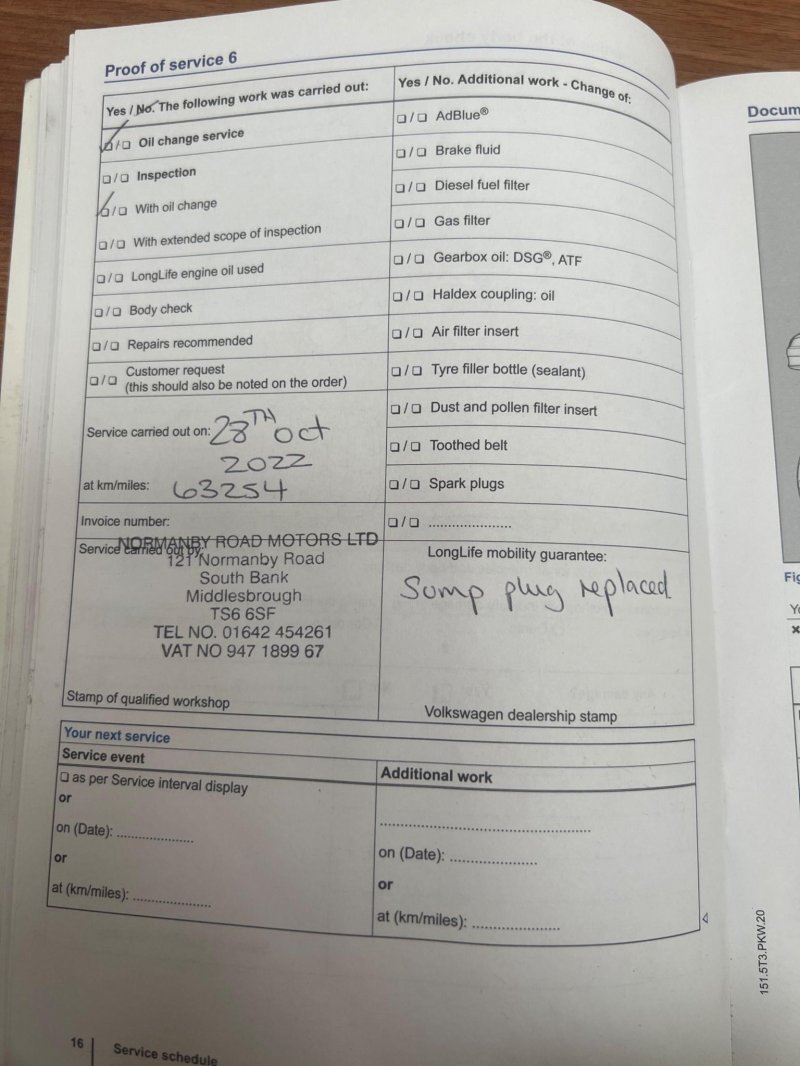 Proof of service 6
Yes / No. The following work was carried out:
❑/❑ Oil change service
❑/❑ Inspection
❑/❑ With oil change
❑/❑ With extended scope of inspection
❑/❑ LongLife engine oil used
❑/❑ Body check
❑/❑ Repairs recommended
❑/❑ Customer request
(this should also be noted on the order)
Service carried out on: 28TH oct
2022
at km/miles: 63254
Invoice number:
Service carried out by:
NORMANBY ROAD MOTORS LTD
121 Normanby Road
South Bank
Middlesbrough
TS6 6SF
TEL NO. 01642 454261
VAT NO 947 1899 67
Stamp of qualified workshop
Yes / No. Additional work - Change of:
❑/❑ AdBlue®
❑/❑ Brake fluid
❑/❑ Diesel fuel filter
❑/❑ Gas filter
❑/❑ Gearbox oil: DSG®, ATF
❑/❑ Haldex coupling: oil
❑/❑ Air filter insert
❑/❑ Tyre filler bottle (sealant)
❑/❑ Dust and pollen filter insert
❑/❑ Toothed belt
❑/❑ Spark plugs
❑/❑ ......................
LongLife mobility guarantee:
Sump plug replaced
Volkswagen dealership stamp
Your next service
Service event
❑ as per Service interval display
or
on (Date): ....................
or
at (km/miles): ....................
Additional work
......................................................
on (Date): ......................
or
at (km/miles): ......................
16 | Service schedule
Docum
Fig
Yo
151.5T3.PKW.20